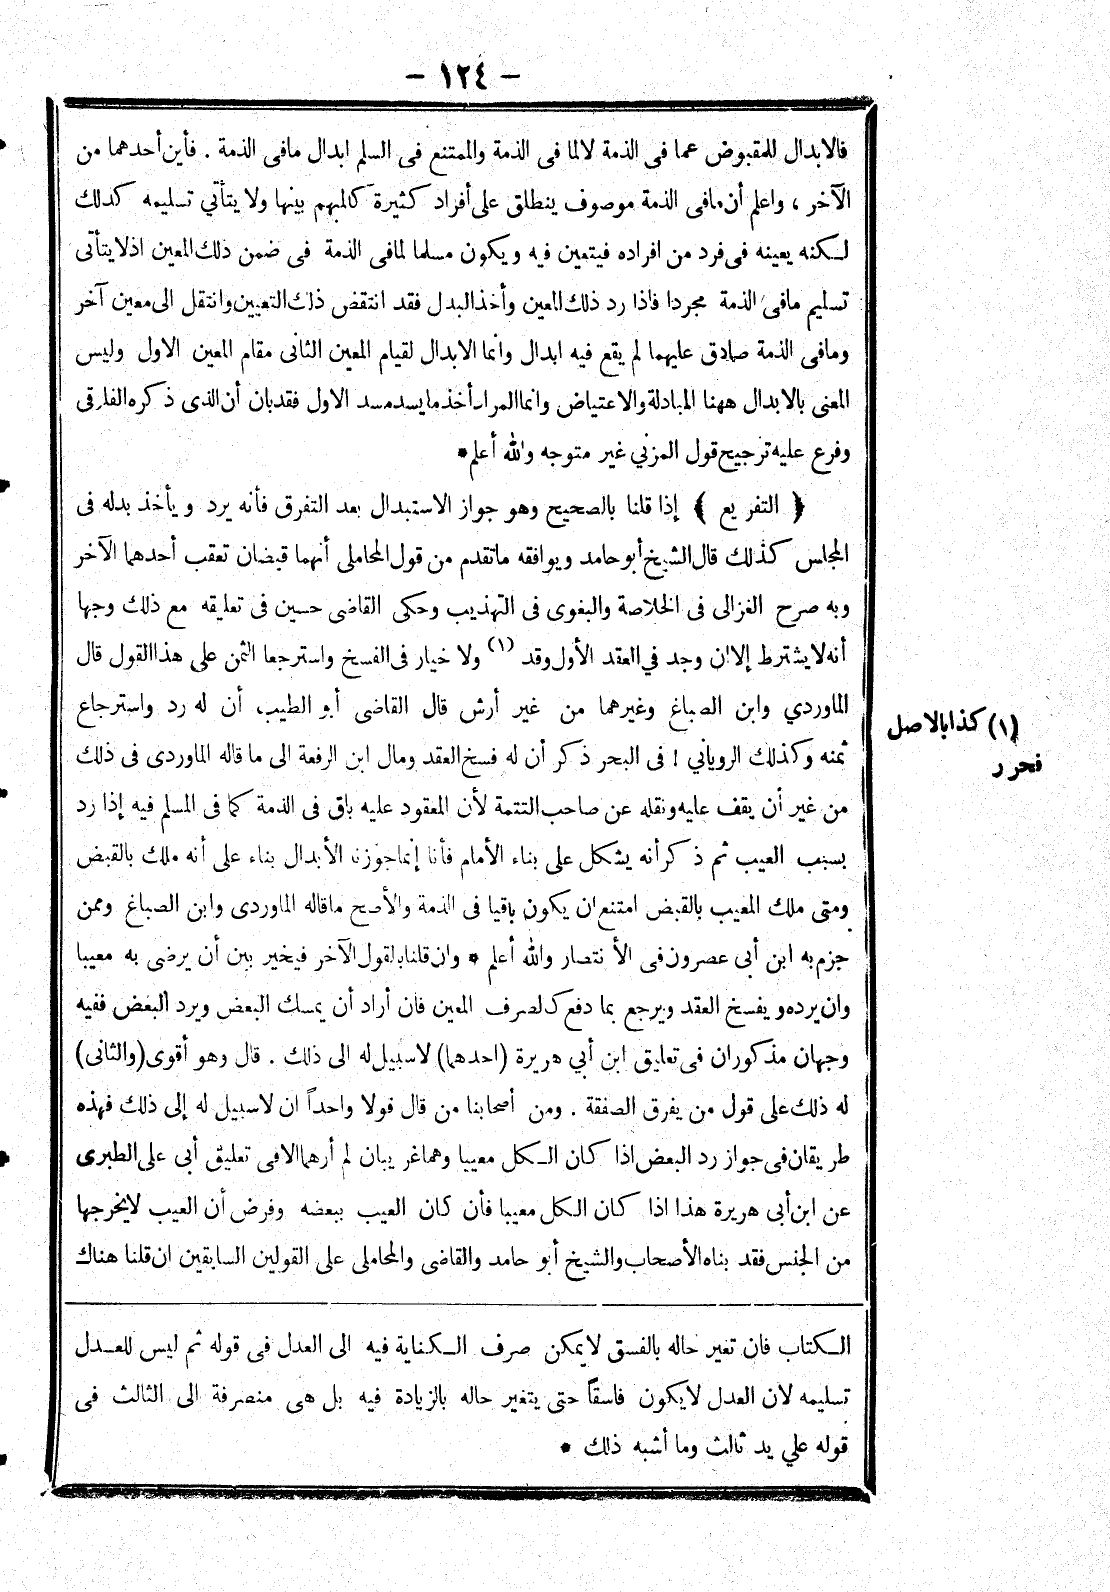 - ١٢٤ -
فالابدال للمقبوض عما فى الذمة لالما فى الذمة والممتنع فى السلم ابدال مافى الذمة . فأين أحدهما من
الآخر ، واعلم أن مافى الذمة موصوف ينطلق على أفراد كثيرة كالمبهم بينها ولا يتأتي تسليمه كذلك
لكنه يعينه فى فرد من افراده فيتعين فيه ويكون مسلما لمافى الذمة فى ضمن ذلك المعين اذلا يتأتى
تسليم مافى الذمة مجردا فاذا رد ذلك المعين وأخذ البدل فقد انتقض ذلك التعيين وانتقل الى معين آخر
ومافى الذمة صادق عليهما لم يقع فيه ابدال وانما الابدال لقيام المعين الثانى مقام المعين الاول وليس
المعنى بالابدال ههنا المبادلة والاعتياض وانما المراد أخذ ما يسد مسد الاول فقد بان أن الذى ذكره الفارقى
وفرع عليه ترجيح قول المزني غير متوجه والله أعلم *
﴿ التفريع ﴾ إذا قلنا بالصحيح وهو جواز الاستبدال بعد التفرق فأنه يرد ويأخذ بدله فى
المجلس كذلك قال الشيخ أبو حامد ويوافقه ماتقدم من قول المحاملى أنهما قبضان تعقب أحدهما الآخر
وبه صرح الغزالى فى الخلاصة والبغوى فى التهذيب وحكى القاضى حسين فى تعليقه مع ذلك وجها
أنه لا يشترط إلا ان وجد في العقد الأول وقد (١) ولا خيار فى الفسخ واسترجعا الثمن على هذا القول قال
الماوردي وابن الصباغ وغيرهما من غير أرش قال القاضى أبو الطيب أن له رد واسترجاع
ثمنه وكذلك الروياني ! فى البحر ذكر أن له فسخ العقد ومال ابن الرفعة الى ما قاله الماوردى فى ذلك
من غير أن يقف عليه ونقله عن صاحب التتمة لأن المعقود عليه باق فى الذمة كما فى المسلم فيه إذا رد
بسبب العيب ثم ذكر أنه يشكل على بناء الأمام فأنا إنما جوزنا الأبدال بناء على أنه ملك بالقبض
ومتى ملك المعيب بالقبض امتنع ان يكون باقيا فى الذمة والأصح ماقاله الماوردى وابن الصباغ وممن
جزم به ابن أبى عصرون فى الأنتصار والله أعلم * وان قلنا بالقول الآخر فيخير بين أن يرضى به معيبا
وان يرده ويفسخ العقد ويرجع بما دفع كالصرف المعين فان أراد أن يمسك البعض ويرد البعض ففيه
وجهان مذكوران فى تعليق ابن أبي هريرة (احدهما) لاسبيل له الى ذلك . قال وهو أقوى (والثانى)
له ذلك على قول من يفرق الصفقة . ومن أصحابنا من قال قولا واحداً ان لاسبيل له إلى ذلك فهذه
طريقان فى جواز رد البعض اذا كان الكل معيبا وهما غريبان لم أرهما الا فى تعليق أبى على الطبرى
عن ابن أبى هريرة هذا اذا كان الكل معيبا فأن كان العيب ببعضه وفرض أن العيب لا يخرجها
من الجنس فقد بناه الأصحاب والشيخ أبو حامد والقاضى والمحاملى على القولين السابقين ان قلنا هناك
(١) كذا بالاصل
فحرر
الكتاب فان تغير حاله بالفسق لا يمكن صرف الكناية فيه الى العدل فى قوله ثم ليس للعدل
تسليمه لان العدل لا يكون فاسقاً حتى يتغير حاله بالزيادة فيه بل هى منصرفة الى الثالث فى
قوله علي يد ثالث وما أشبه ذلك *